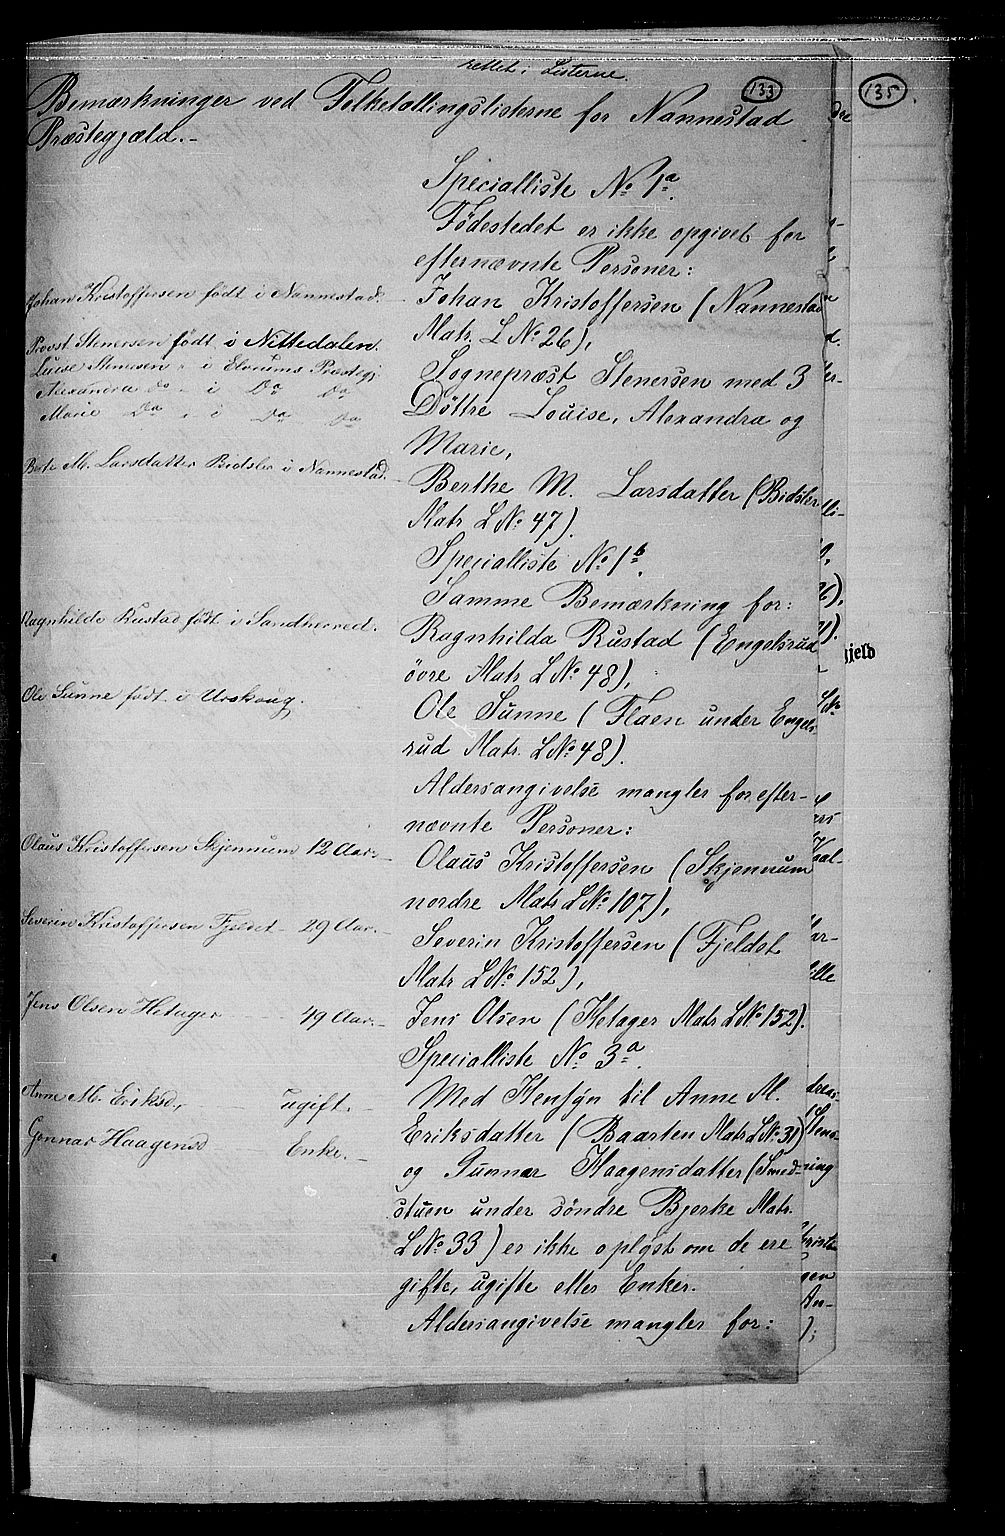 rettet i Listerne.
133
135
Bemærkninger ved Folketællingslisterne for Nannestad
Præstegjæld.-
Specialliste No 1a.
Fødestedet er ikke opgivet for
efternævnte Personer:
Johan Kristoffersen født i Nannestad.
Johan Kristoffersen (Nannestad
Matr. L No 26),
Provst Stenersen født i Nittedalen.
Luise Stenersen " i Elverums Præstgj
Sognepræst Stenersen med 3
Alexandra do - i Do Do
Marie Do " i Do Do
Döttre Louise, Alexandra og
Marie,
Berte M. Larsdatter Bidsler i Nannestad.
Berthe M. Larsdatter (Bidsler
Matr L No 47).
Specialliste No 1b.
Samme Bemærkning for:
Ragnhilde Rustad født i Sandherred.
Ragnhilda Rustad (Engelsrud
övre Matr L No 48),
Ole Sunne født i Urskoug.
Ole Sunne (Flaen under Engels-
rud Matr. L No 48).
Aldersangivelse mangler for efter-
nævnte Personer:
Olaus Kristoffersen Skjennum 12 Aar.-
Olaus Kristoffersen (Skjennum
nordre Matr L No 107),
Severin Kristoffersen Fjeldet - 29 Aar.-
Severin Kristoffersen (Fjeldet
Matr L No 152),
Jens Olsen Hetager - - 49 Aar.-
Jens Olsen (Hetager Matr L No 152).
Specialliste No 3a.
Anne M. Eriksd. - ugift.-
Med Hensyn til Anne M.
Gunnar Haagensd - Enke.-
Eriksdatter (Baarten Matr L No 31)
og Gunnar Haagensdatter (Smed-
stuen under söndre Bjerke Matr.
L No 33) er ikke oplyst om de ere
gifte, ugifte eller Enker.
Aldersangivelse mangler for:
gjeld